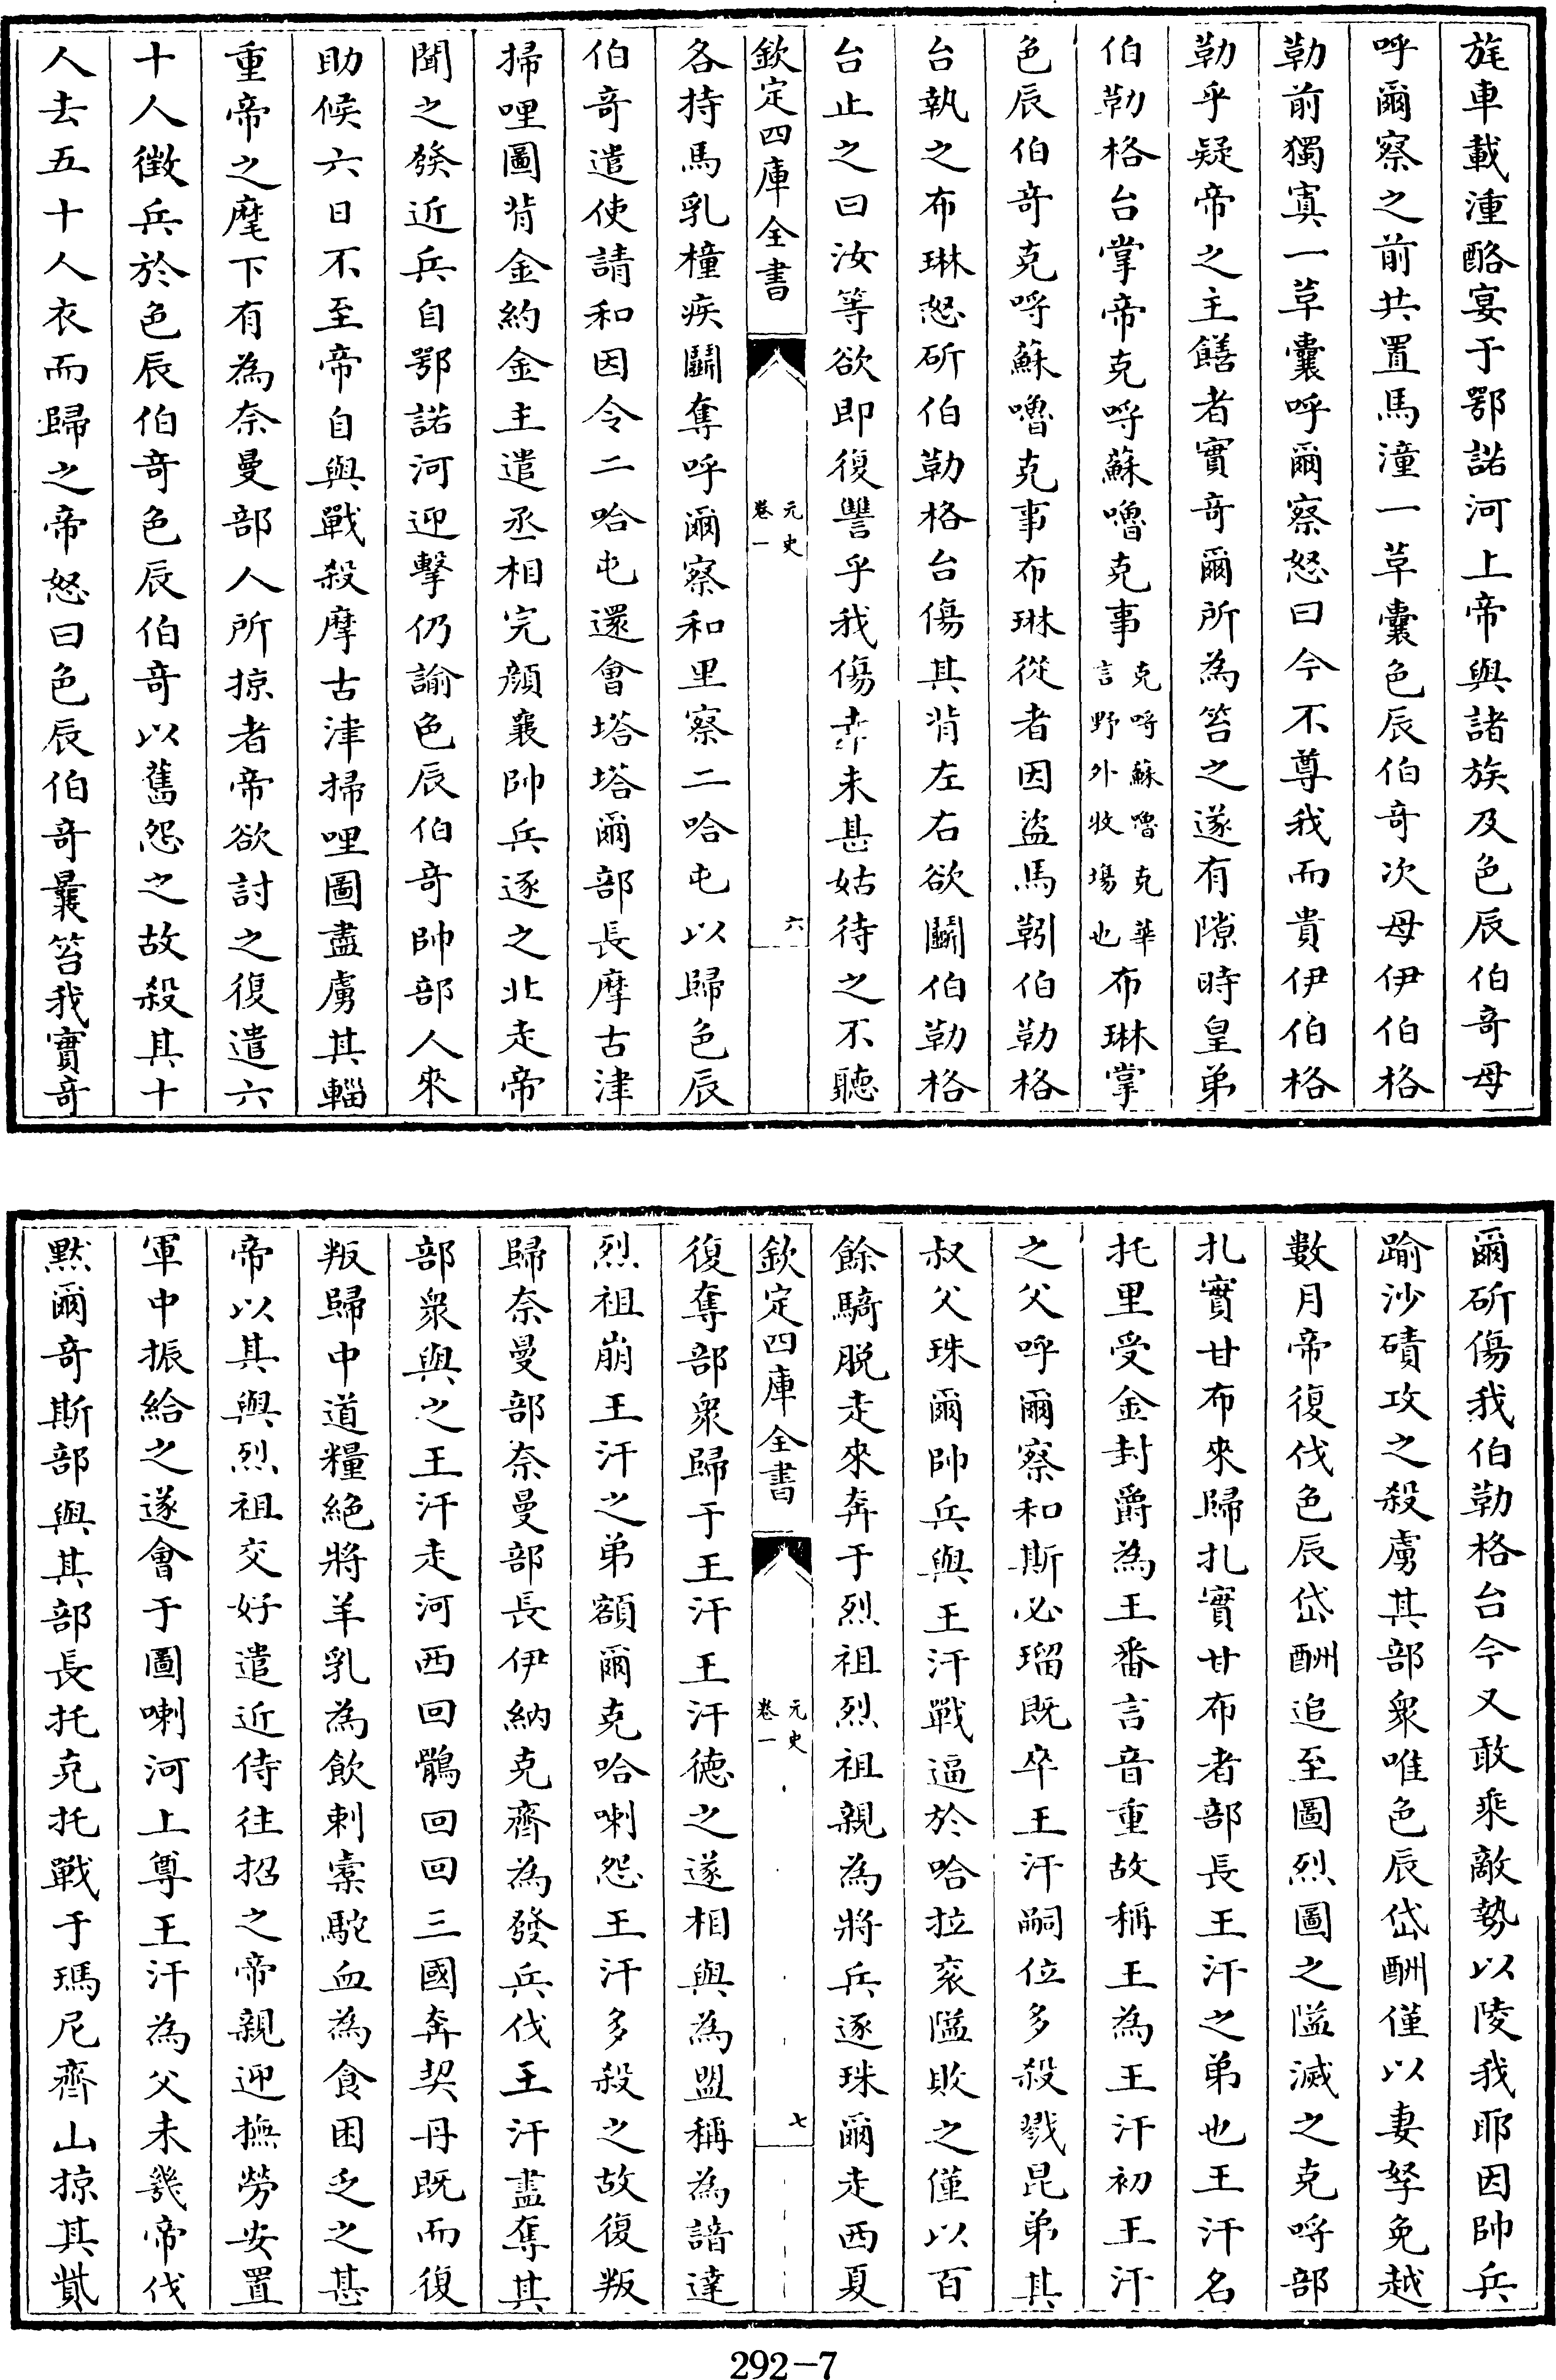 旄車載湩酪宴于鄂諾河上帝與諸族及色辰伯奇母
呼爾察之前共置馬湩一草囊色辰伯奇次母伊伯格
勒前獨寘一草囊呼爾察怒曰今不尊我而貴伊伯格
勒乎疑帝之主饍者實奇爾所為笞之遂有隙時皇弟
伯勒格台掌帝克哷蘇嚕克事克哷蘇嚕克華言野外牧塲也布琳掌
色辰伯奇克哷蘇嚕克事布琳從者因盜馬靷伯勒格
台執之布琳怒斫伯勒格台傷其背左右欲鬭伯勒格
台止之曰汝等欲即復讐乎我傷幸未甚姑待之不聽
欽定四庫全書
元史
卷一
六
各持馬乳橦疾鬭奪呼爾察和里察二哈屯以歸色辰
伯奇遣使請和因令二哈屯還會塔塔爾部長摩古津
掃哩圖背金約金主遣丞相完顏襄帥兵逐之北走帝
聞之發近兵自鄂諾河迎擊仍諭色辰伯奇帥部人來
助候六日不至帝自與戰殺摩古津掃哩圖盡虜其輜
重帝之麾下有為奈曼部人所掠者帝欲討之復遣六
十人徵兵於色辰伯奇色辰伯奇以舊怨之故殺其十
人去五十人衣而歸之帝怒曰色辰伯奇曩笞我實奇
爾斫傷我伯勒格台今又敢乘敵勢以陵我耶因帥兵
踰沙磧攻之殺虜其部衆唯色辰岱酬僅以妻孥免越
數月帝復伐色辰岱酬追至圖烈圖之隘滅之克哷部
扎實甘布來歸扎實甘布者部長王汗之弟也王汗名
托里受金封爵為王番言音重故稱王為王汗初王汗
之父呼爾察和斯必瑠既卒王汗嗣位多殺戮昆弟其
叔父珠爾帥兵與王汗戰逼於哈拉衮隘敗之僅以百
餘騎脫走來奔于烈祖烈祖親為將兵逐珠爾走西夏
欽定四庫全書
元史
卷一
七
復奪部衆歸于王汗王汗德之遂相與為盟稱為諳達
烈祖崩王汗之弟額爾克哈喇怨王汗多殺之故復叛
歸奈曼部奈曼部長伊納克齊為發兵伐王汗盡奪其
部衆與之王汗走河西回鶻回回三國奔契丹既而復
叛歸中道糧絕將羊乳為飲刺橐駝血為食困乏之甚
帝以其與烈祖交好遣近侍往招之帝親迎撫勞安置
軍中振給之遂會于圖喇河上尊王汗為父未幾帝伐
黙爾奇斯部與其部長托克托戰于瑪尼齊山掠其貲
292-7